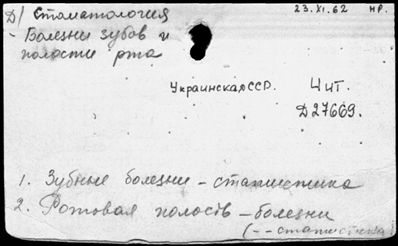 Д/ Стоматология
23.XI.62 НР.
- Болезни зубов и
полости рта
Украинская ССР.
Чит.
Д27669.
1. Зубные болезни - статистика
2. Ротовая полость - болезни
(-- статистика